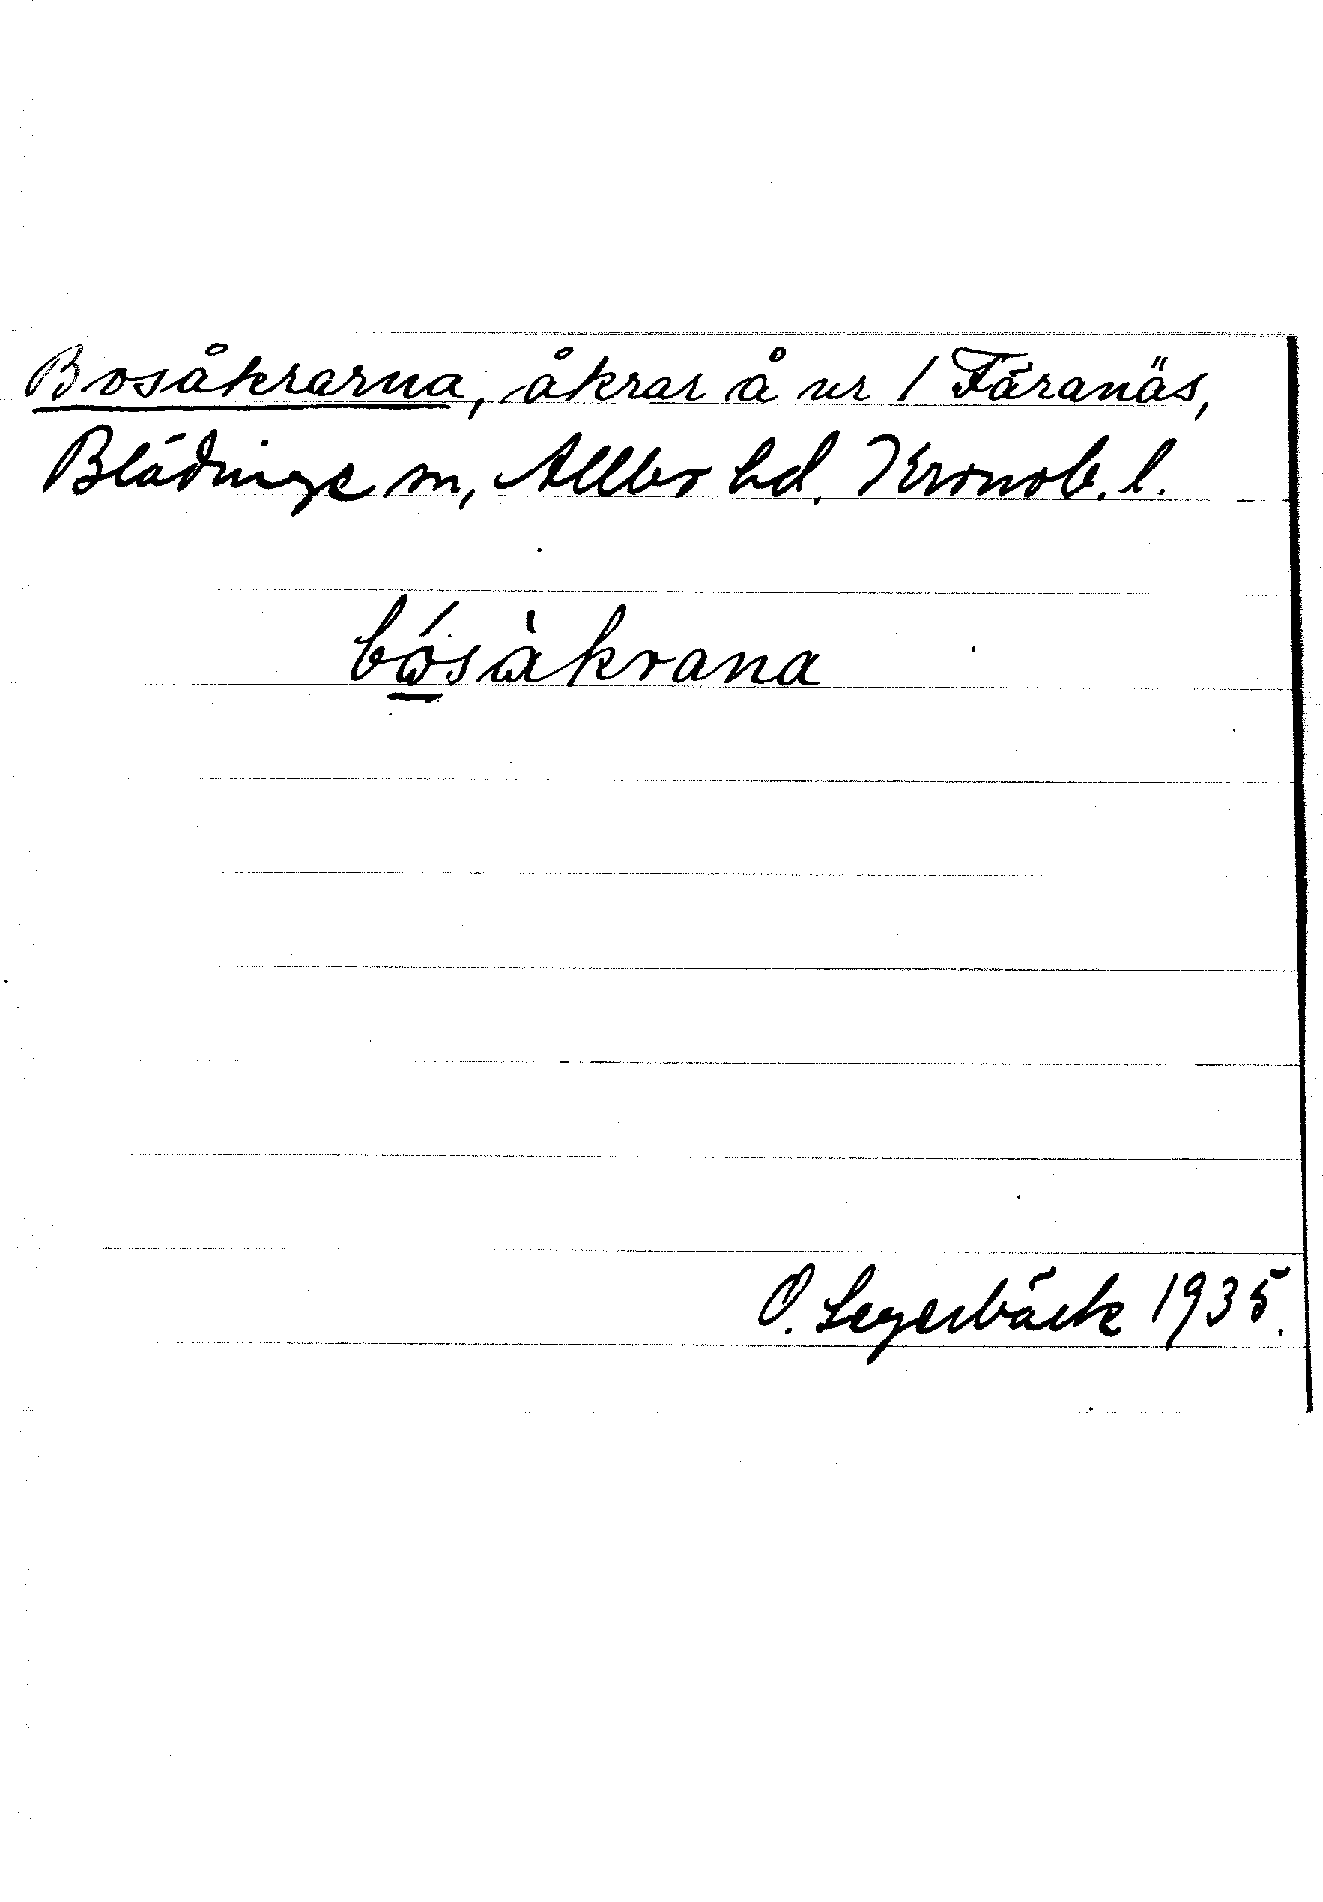 Bosåkrarna, åkrar å nr 1 Fåranäs,
Blädinge sn, Allbo hd. Kronob. l.
bósàkrana
O. Segerbäck 1935.